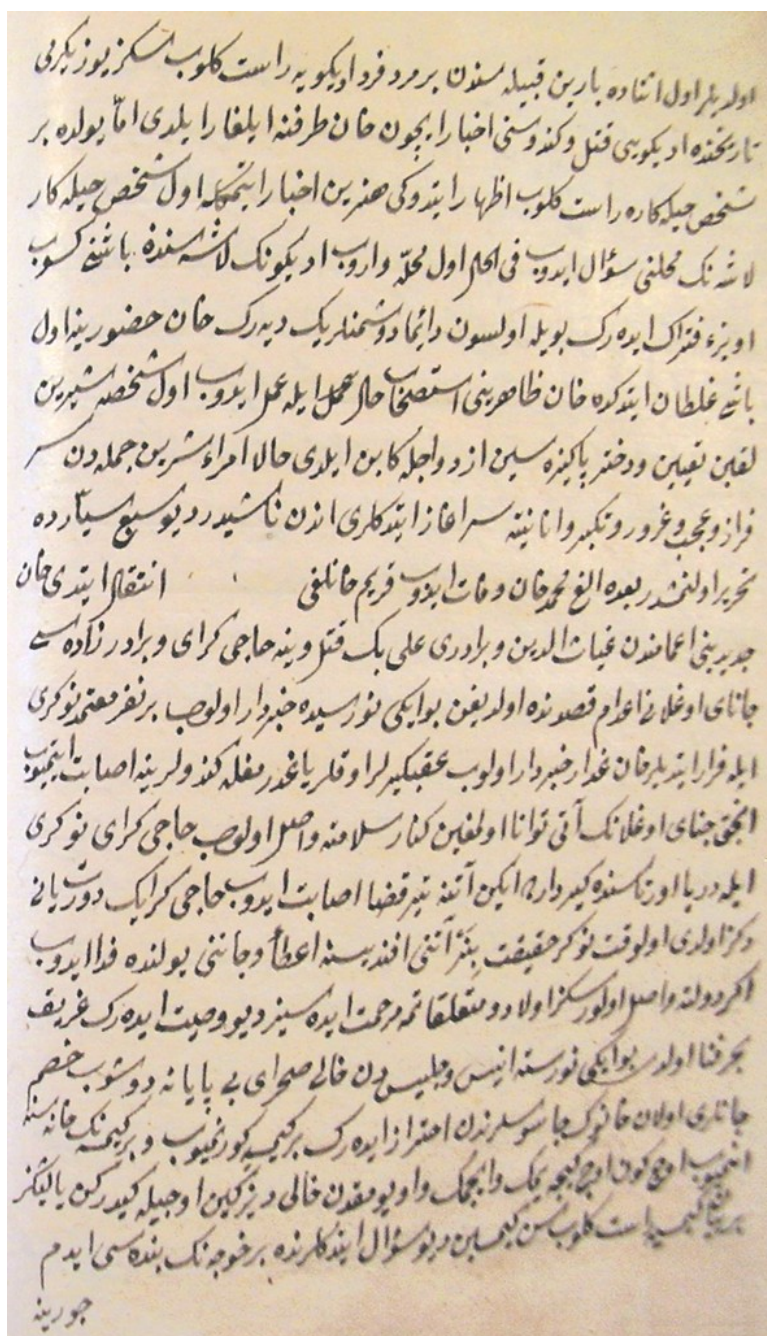 اولدیلر اول اثناده بارین قبیله سندن بر مرد فرد ادیکویه راست کلوب سکز یوز یکرمی
تاریخنده ادیکویی قتل وکندوسنی اخبار ایچون خان طرفنه ایلغار ایلدی امّا یولده بر
شخص حیله کاره راست کلوب اظهار ایتدوکی هنرین اخبار ایتمکله اول شخص حیله کار
لاشه نک محلنی سؤال ایدوب فی الحال اول محلّه واروب ادیکونک لاشه سنده باشنی کسوب
آویزۀ فتراک ایده رک بویله اولسون دائما دوشمنلریک دیه رک خان حضورینه اول
باشی غلطان ایتدکده خان ظاهرینی استصحاب حال عمل ایله عمل ایدوب اول شخصه شیرین
لقبن تعیین ودختر پاکیزه سین ازدواجله کابین ایلدی حالا امراء شیرین جمله دن سر
فراز وعجب وغرور وتکبر وانانیته سر اغاز ایتدکلری اندن ناشیدر دیو سبع سیّارده
تحریر اولنمشدر بعده الغ محمد خان وفات ایدوب قریم خانلغی انتقال ایتدی خان
جدید بنی اعمامندن غیاث الدین وبرادری علی بک قتل وینه حاجی کرای وبرادر زاده سی
جانای اوغلانی اعدام قصدنده اولدیغن بو ایکی نورسیده خبردار اولوب بر نفر معتمد نوکری
ایله فرار ایتدیلر خان غدار خبردار اولوب عقبکیرلر اوقلر یاغدرمغله کندولرینه اصابت ایتمیوب
انجق جنای اوغلانک آتی توانا اولمغین کنار سلامته واصل اولوب حاجی کرای نوکری
ایله دریا اورتاسنده کیردار ایکن آتنه تیر قضا اصابت ایدوب حاجی کرایک دورت یانی
دکز اولدی اولوقت نوکر حقیقت بتر آتنی افندیسنه اعطأ وجاننی یولنده فدا ایدوب
اکر دولته واصل اولورسکز اولاد ومتعلقاتمه مرحمت ایده سیز دیو وصیت ایده رک غریق
بحر فنا اولدی بو ایکی نورسته انیس وجلیس دن خالی صحرای بی پایانه دوشوب خصم
جانلری اولان خانوک جاسوسلرندن احتراز ایده رک بر کیمسیه کورنمیوب وبر کیمسه نک خانه سنه
انمیوب اوچ کون اوچ کیجه یمک وایچمک واویومقدن خالی دیزکین اوجیله کیدرکن یالیکز
بر یایه کیمسیه راست کلوب سن کیمسین دیو سؤال ایتدکلرنده بر خوجه نک بنده سی ایدم
جورینه